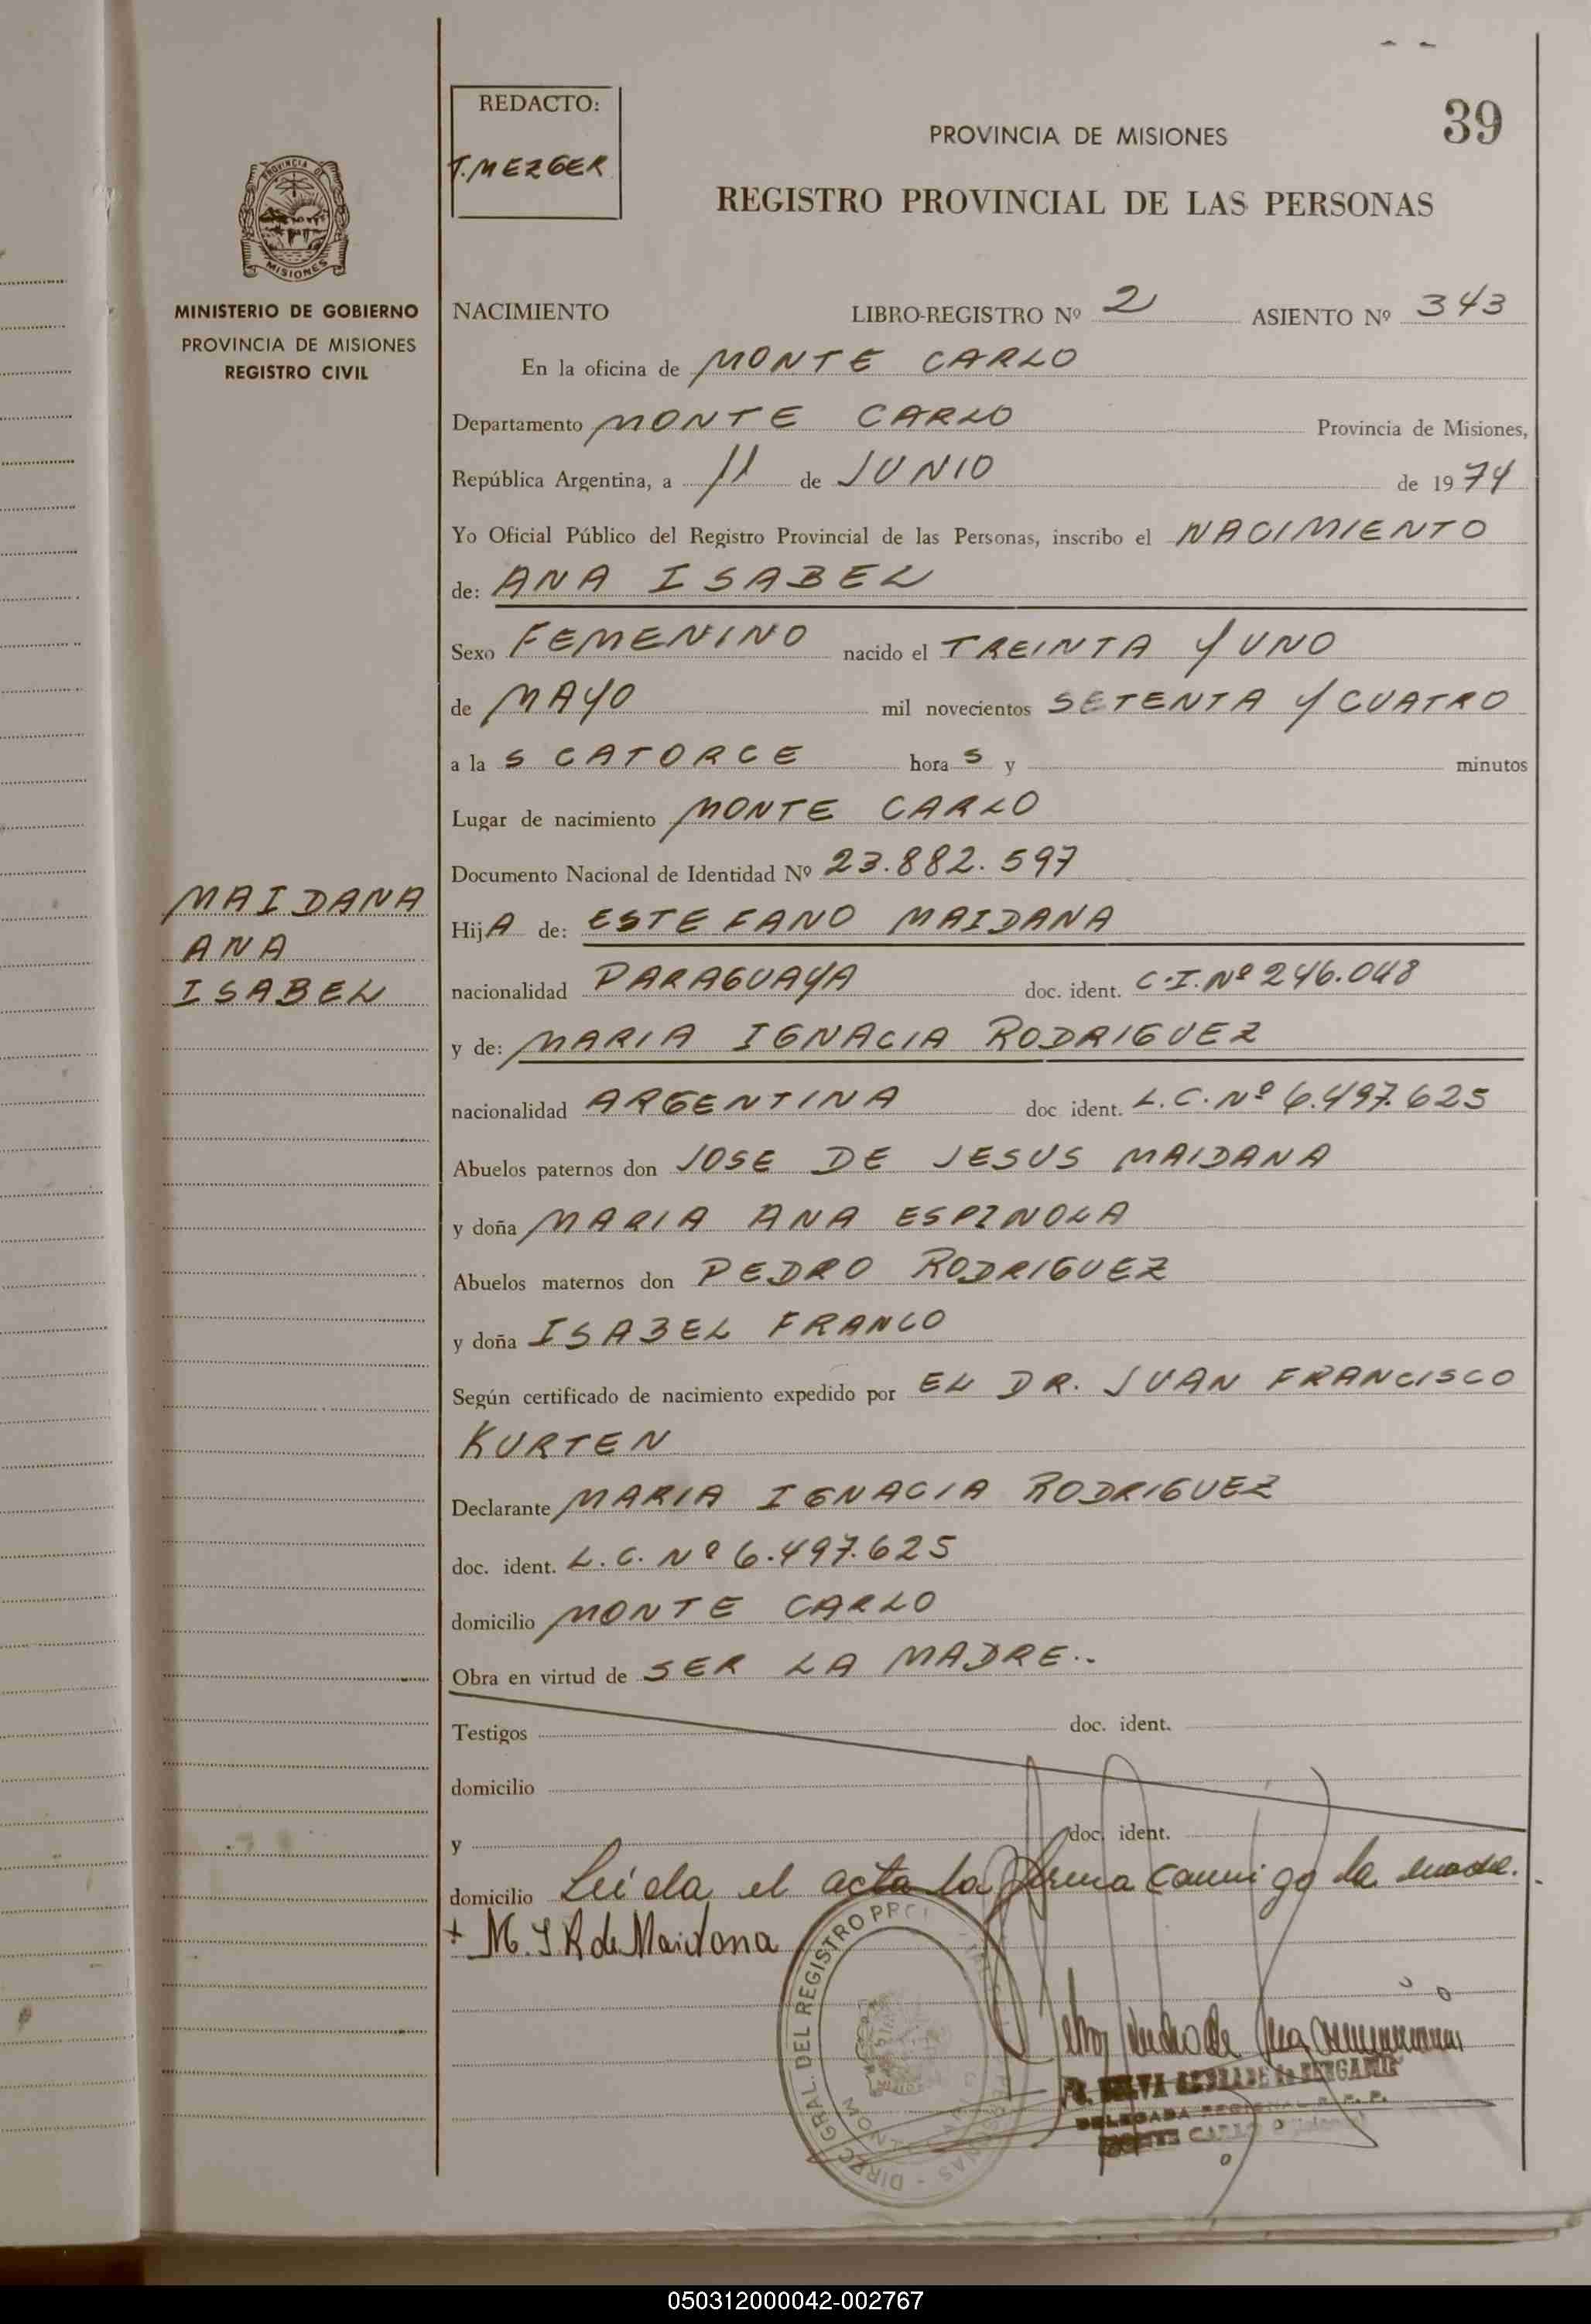 39
REDACTO:
T. MEZGER
PROVINCIA DE MISIONES
REGISTRO PROVINCIAL DE LAS PERSONAS
PROVINCIA DE
MISIONES
MINISTERIO DE GOBIERNO
PROVINCIA DE MISIONES
REGISTRO CIVIL
NACIMIENTO LIBRO-REGISTRO Nº 2 ASIENTO Nº 343
En la oficina de MONTE CARLO
Departamento MONTE CARLO Provincia de Misiones,
República Argentina, a 11 de JUNIO de 1974
Yo Oficial Público del Registro Provincial de las Personas, inscribo el NACIMIENTO
de: ANA ISABEL
Sexo FEMENINO nacido el TREINTA Y UNO
de MAYO mil novecientos SETENTA Y CUATRO
a la S CATORCE hora S y minutos
Lugar de nacimiento MONTE CARLO
Documento Nacional de Identidad Nº 23.882.597
MAIDANA
ANA
ISABEL
HijA de: ESTEFANO MAIDANA
nacionalidad PARAGUAYA doc. ident. C.I. Nº 246.048
y de: MARIA IGNACIA RODRIGUEZ
nacionalidad ARGENTINA doc ident. L.C. Nº 6.497.625
Abuelos paternos don JOSE DE JESUS MAIDANA
y doña MARIA ANA ESPINOLA
Abuelos maternos don PEDRO RODRIGUEZ
y doña ISABEL FRANCO
Según certificado de nacimiento expedido por EL DR. JUAN FRANCISCO
KURTEN
Declarante MARIA IGNACIA RODRIGUEZ
doc. ident. L.C. Nº 6.497.625
domicilio MONTE CARLO
Obra en virtud de SER LA MADRE..
Testigos doc. ident.
domicilio
y doc. ident.
domicilio Leida el acta la firma conmigo la madre.
+ M. I. R de Maidana
DIREC. GRAL. DEL REGISTRO
DELEGADA REGIONAL R. P. P.
MONTE CARLO
050312000042-002767